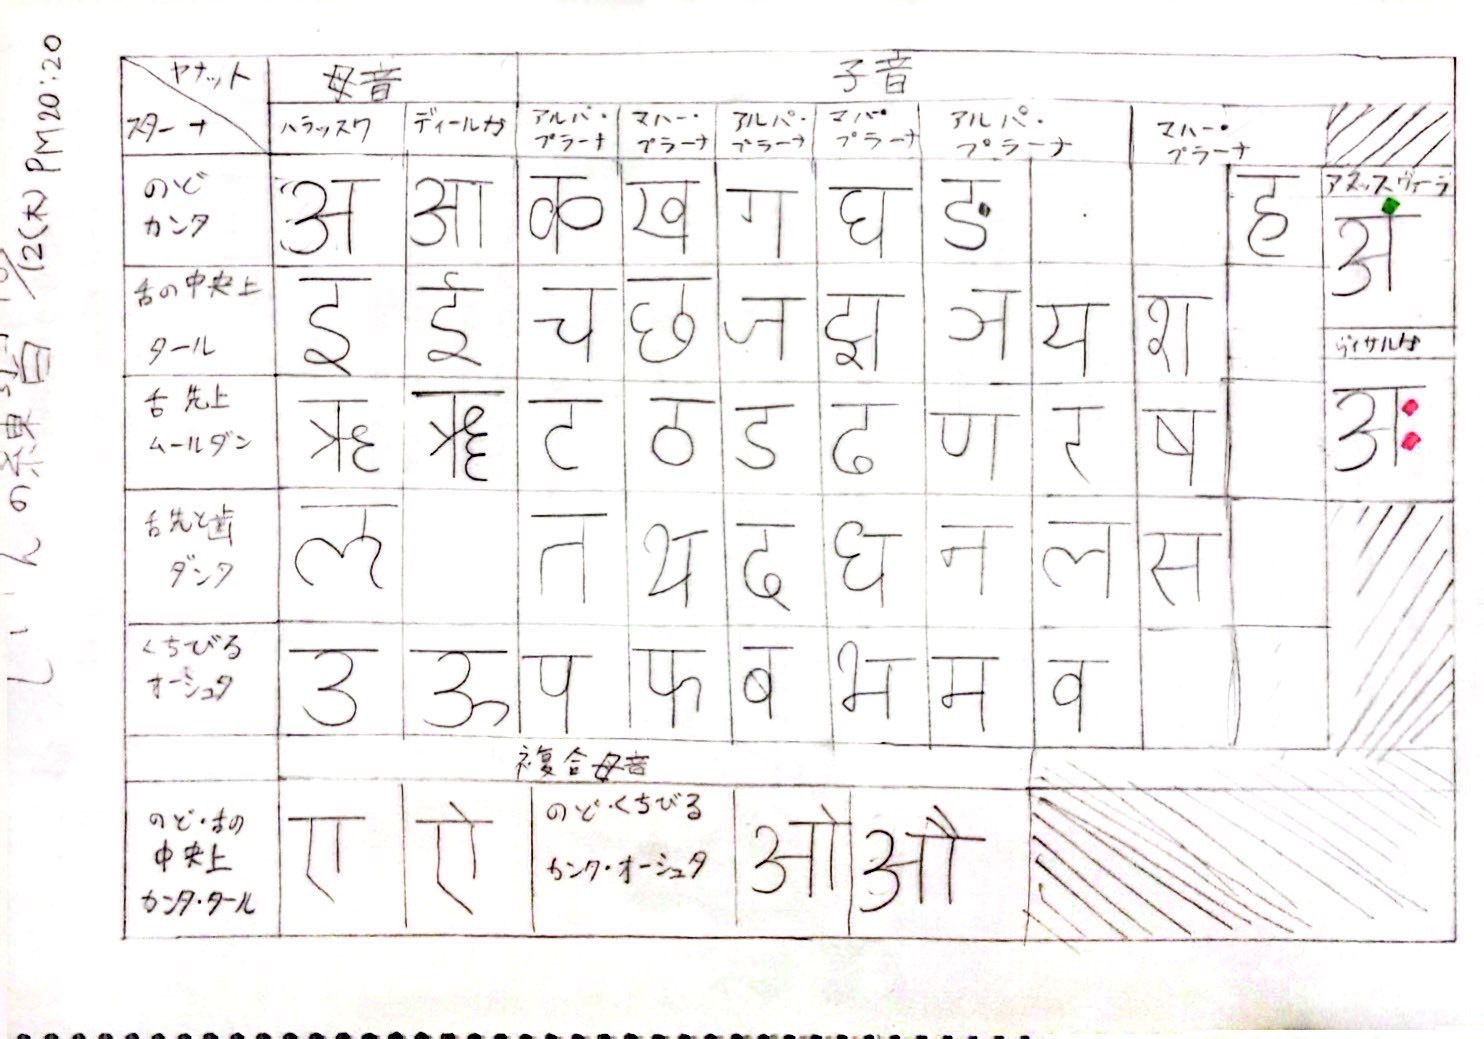 PM20:20
ヤナット 母音 子音
スターナ ハラッスワ ディールガ アルパ・プラーナ マハー・プラーナ アルパ・プラーナ マハー・プラーナ アルパ・プラーナ マハー・プラーナ
のど
カンタ
अ आ क ख ग घ ङ ह
अं
舌の中央上
タール
इ ई च छ ज झ ञ य श
ヴィサルガ
舌先上
ムールダン
ऋ ॠ ट ठ ड ढ ण र ष
अः
舌先と歯
ダンタ
ऌ त थ द ध न ल स
くちびる
オーシュタ
उ ऊ प फ ब भ म व
複合母音
のど・舌の
中央上
カンタ・タール
ए ऐ
のど・くちびる
カンタ・オーシュタ
ओ औ